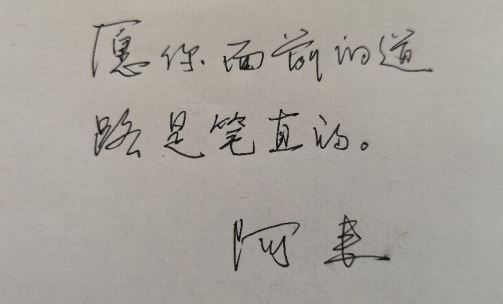 愿你面前的道
路是笔直的。
阿来